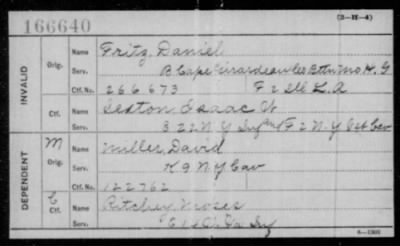 166640
(3-H-4)
INVALID
Orig.
Name Fritz, Daniel
Serv. B Cape Girardeau Co Bttn Mo H. G
Ctf. No. 266,673 F 2 Ill L. A
Ctf.
Name Sexton Isaac W
Serv. B 22 N Y Inf and F 2 N. Y Vet Cav
DEPENDENT
M
Orig.
Name Miller David
Serv. K 9 N Y Cav
Ctf. No. 122,762
C
Ctf.
Name Ritchey Moses
Serv. Inf